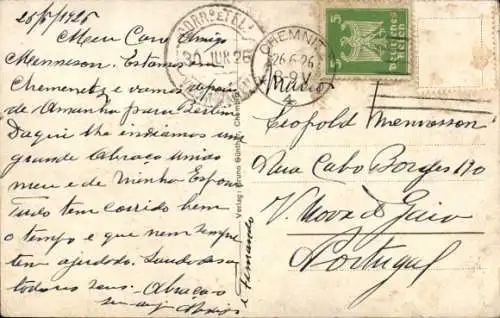 25/6/1926
Meu Caro Amigo
Menneson. Estamos em
Chemenetz e vamos depois
de Amanha para Berlim
Daqui lhe indiamos um
grande Abraço unido
meu e de Minha Espoza
Tudo tem corrido bem
o tempo é que nem sempre
tem ajudado. Saudades a
todos os seus. Abraça-o
seu amigo
e Fernando
Verlag: Bruno
CHEMNITZ
26.6.26
8-9 V
30 JUN 26
5
5
Deutsches
Reich
Leopold Menneson
Rua Cabo Borges 110
V. Nova de Gaia
Portugal